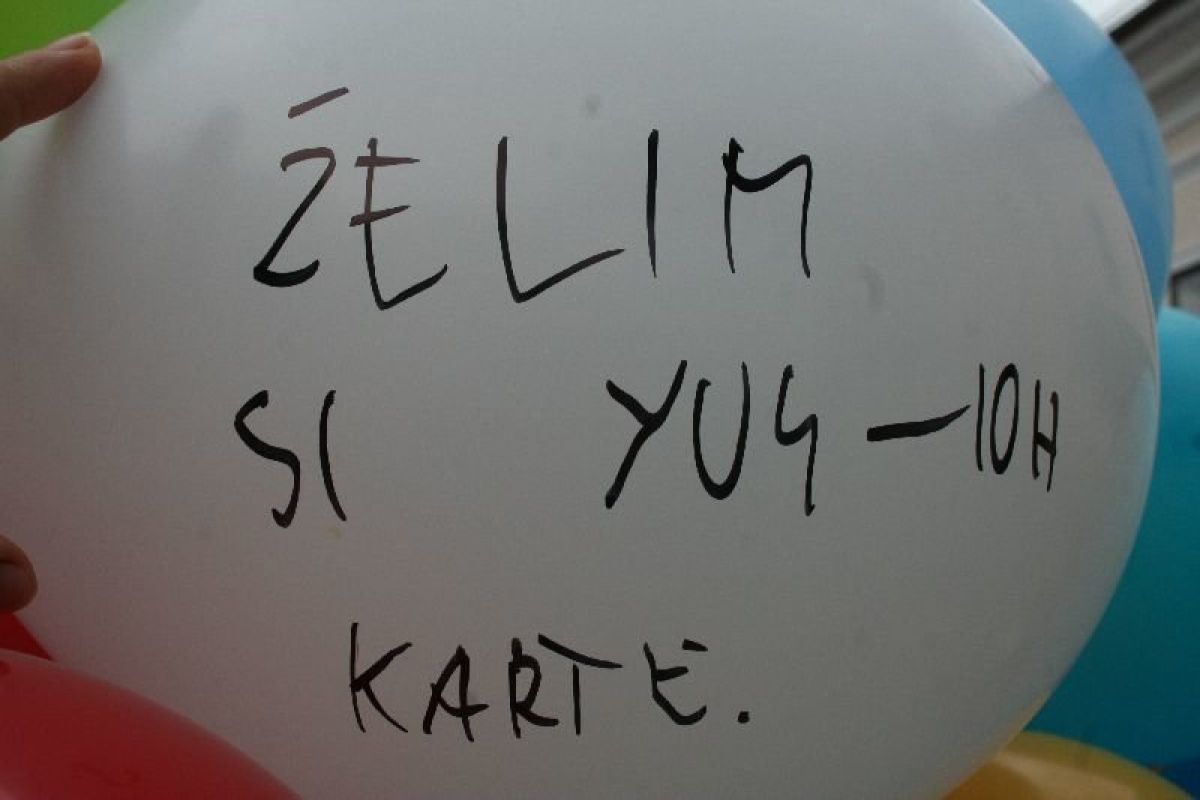 ŽELIM
SI YUG-IOH
KARTE.